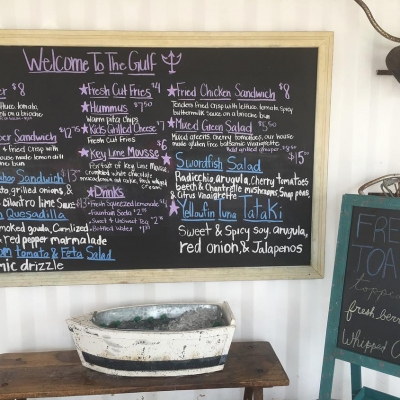 Welcome To The Gulf
$8
lettuce, tomato,
Sandwich $12.75
& fried crisp with
house made lemon dill
Sandwich $13
grilled onions, &
cilantro lime sauce
Quesadilla
smoked gouda, Carmlized
red pepper marmalade
tomato & Feta Salad
drizzle
Fresh Cut Fries $4
Hummus $7.50
Warm pita Chips
Kids Grilled Cheese $7
Fresh Cut Fries
Key Lime Mousse $6
crumbled white chocolate
Drinks
Fresh Squeezed Lemonade $4
Fountain Soda $2
Sweet & Unsweet Tea $2
Bottled Water
Fried Chicken Sandwich $8
Tenders fried Crisp with lettuce, tomato, spicy
buttermilk sauce on a brioche bun
Mixed Green Salad
Mixed greens, cherry tomatoes, our house
made gluten free balsamic vinaigrette
Swordfish Salad $15
Radicchio, arugula, Cherry Tomatoes
beech & Chantrelle mushrooms, Snap peas,
& Citrus Vinaigrette
Yellowfin Tuna Tataki
Sweet & Spicy soy, arugula,
red onion, & Jalapenos
fresh berr
Whipped C